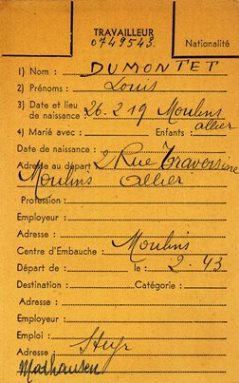 TRAVAILLEUR
0749543
Nationalité
1) Nom : DUMONTET
2) Prénoms : Louis
3) Date et lieu
de naissance : 26.2.19 Moulins
allier
4) Marié avec : Enfants :
Date de naissance :
Adresse au départ 2 Rue Traversière
Moulins allier
Profession :
Employeur :
Adresse :
Centre d'Embauche : Moulins
Départ de : le : 2.43
Destination : Catégorie :
Adresse :
Employeur :
Emploi : Steyr
Adresse
Mathausen